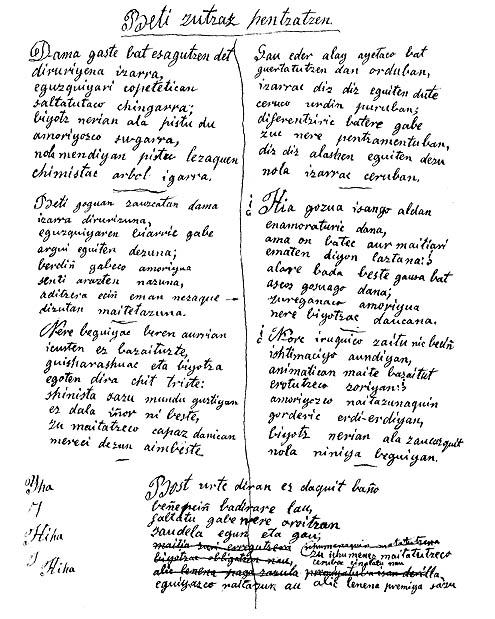 Beti zutraz pentzatzen.
Dama gaste bat esagutzen det
diruriyena izarra,
eguzquiyari copetetican
saltatutaco chingarra;
biyotz nerian ala pistu du
amoriyozco su-garra,
nola mendiyan pistu lezaquen
chimistac arbol igarra.
Beti goguan zauzcatan dama
izarra dirurizuna,
eguzquiyaren bear gabe
argui eguiten dezuna;
berdiñ gabeco amoriyua
senti arazten nazuna,
aditzera eciñ eman nezaque
dizutan maitetazuna.
Nere beguiyac beren aurrian
icusten ez bazaituzte,
guisharashuac eta biyotza
egoten dira chit triste:
shinista zazu mundu guztiyan
ez dala iñor ni beste,
zu maitatzeco capaz danican
mereci dezun aimbeste.
Gau eder alay ayetaco bat
guertatutzen dan orduban,
izarrac diz diz eguiten dute
ceruco urdin puruban;
diferentziric batere gabe
zuc nere pentzamentuban,
diz diz alashen eguiten dezu
nola izarrac ceruban.
¿Hia gozua izango aldan
enamoraturic dana,
ama on batec aur maitiari
ematen diyon laztana!?
alare bada beste gauza bat
ascoz gozuago dana;
zureganaco amoriyua
nere biyotzac daucana.
¿Nore iruguico zaitu nic bediñ
ishtimaciyo aundiyan,
animatican maite bazaitut
erotutzeco zoriyan!?
amoriyozco naitazunaquin
gorderic erdi-erdiyan,
biyotz nerian ala zauzcazquit
nola niniya beguiyan.
Bost urte diran ez daquit baño
beñepeiñ badirare lau,
faltatu gabe nere oroitzan
zaudela egun eta gau;
zu ichumenez maitatutzeco
eguiyazco naitazuk au alic lenena premiya zazu